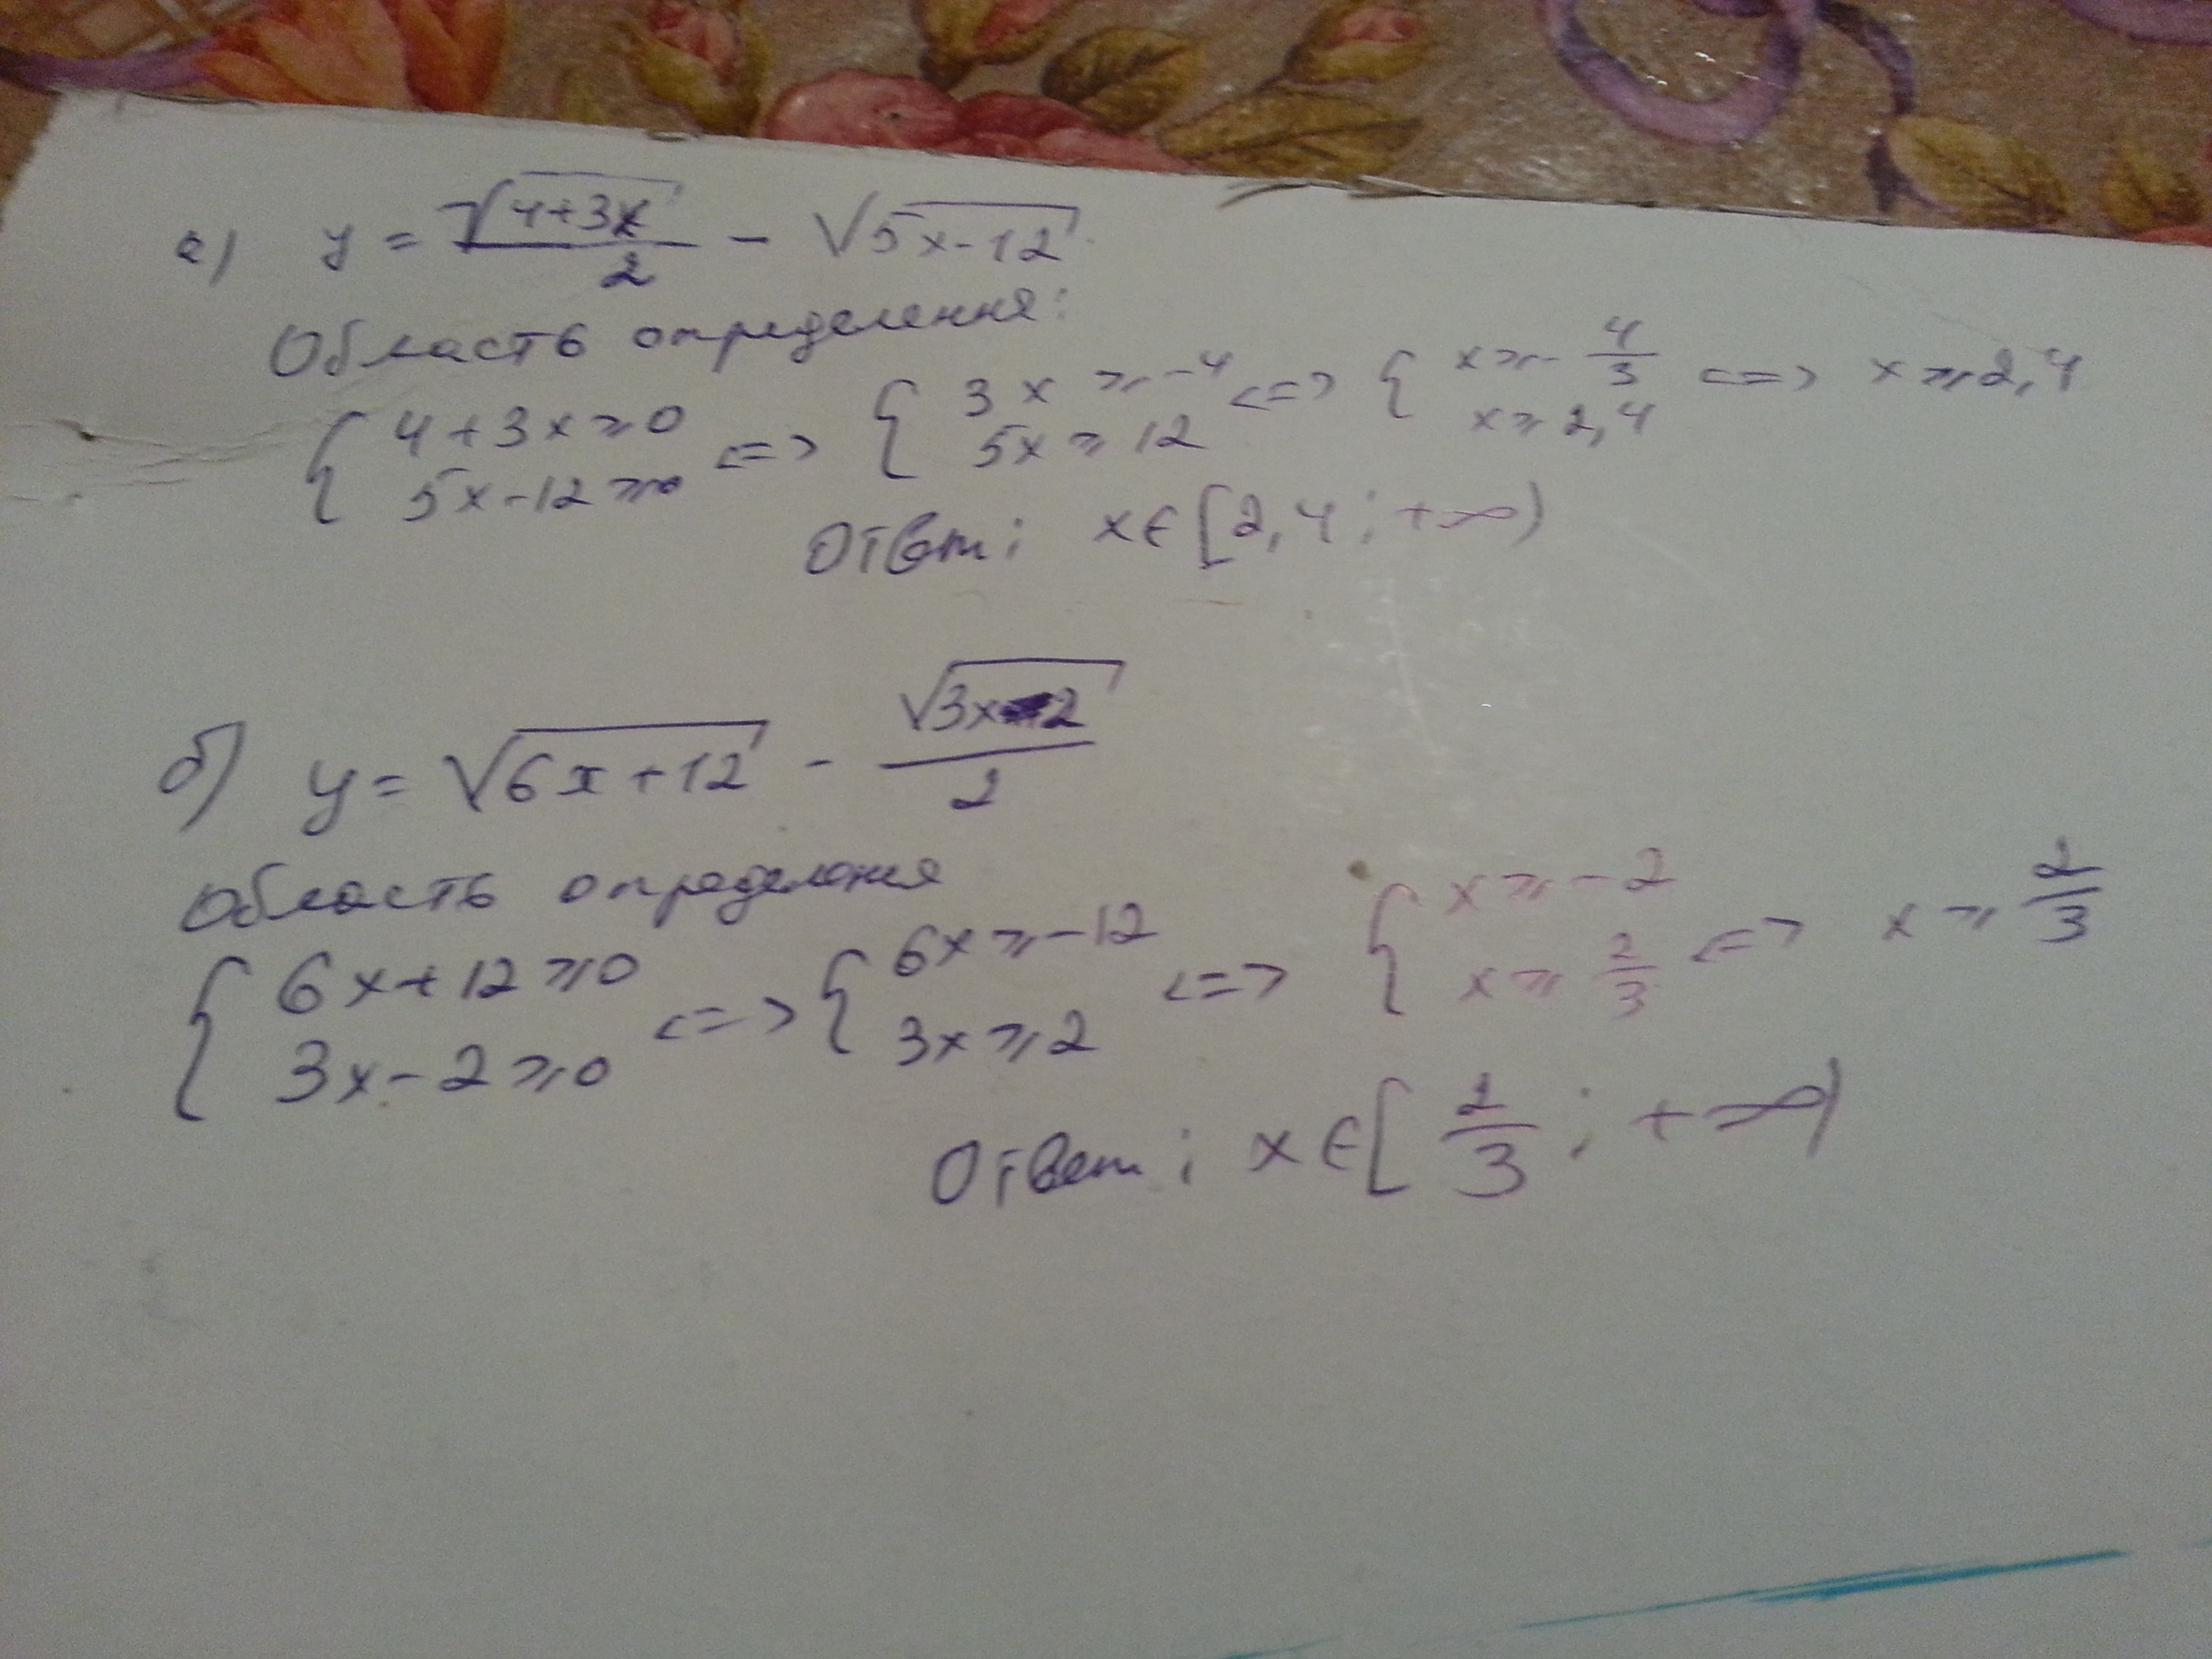 а) y = √(4+3x)/2 - √(5x-12)
Область определения:
{ 4+3x≥0 ; 5x-12≥0 <=> { 3x≥-4 ; 5x≥12 <=> { x≥-4/3 ; x≥2,4 <=> x≥2,4
Ответ: x∈[2,4; +∞)
б) y= √(6x+12) - √(3x-2)/2
Область определения
{ 6x+12≥0 ; 3x-2≥0 <=> { 6x≥-12 ; 3x≥2 <=> { x≥-2 ; x≥2/3 <=> x≥2/3
Ответ: x∈[2/3; +∞)